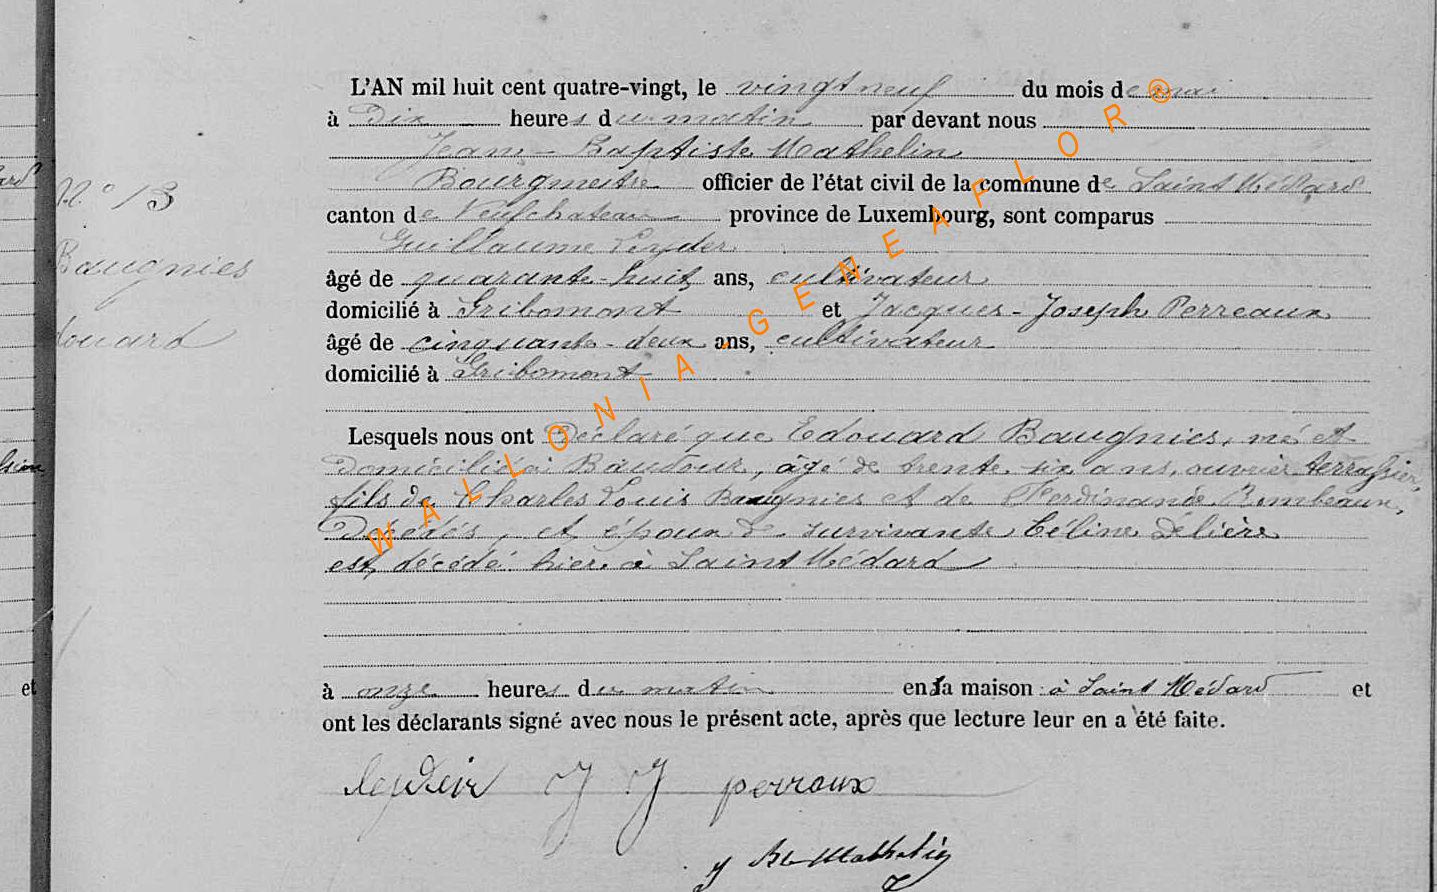 L'AN mil huit cent quatre-vingt, le vingt neuf du mois de mai
à Dix heures du matin par devant nous
Jean-Baptiste Mathelin
Bourgmestre officier de l'état civil de la commune de Saint Médard
canton de Neufchateau province de Luxembourg, sont comparus
Guillaume Leyder
âgé de quarante-huit ans, cultivateur
domicilié à Gribomont et Jacques-Joseph Perreaux
âgé de cinquante-deux ans, cultivateur
domicilié à Gribomont
Lesquels nous ont Déclaré que Edouard Baugnies, né et
Domicilié à Baudour, âgé de trente six ans, ouvrier terrassier,
fils de Charles Louis Baugnies et de Ferdinande
Décédés, et époux de survivante Céline Délière
est décédé hier à Saint Médard
à onze heures du matin en sa maison à Saint Médard et
ont les déclarants signé avec nous le présent acte, après que lecture leur en a été faite.
Leyder J J perraux
J Bte Mathelin
N° 13
Baugnies
douard
et
WALLONIA-GENEAFLOR®